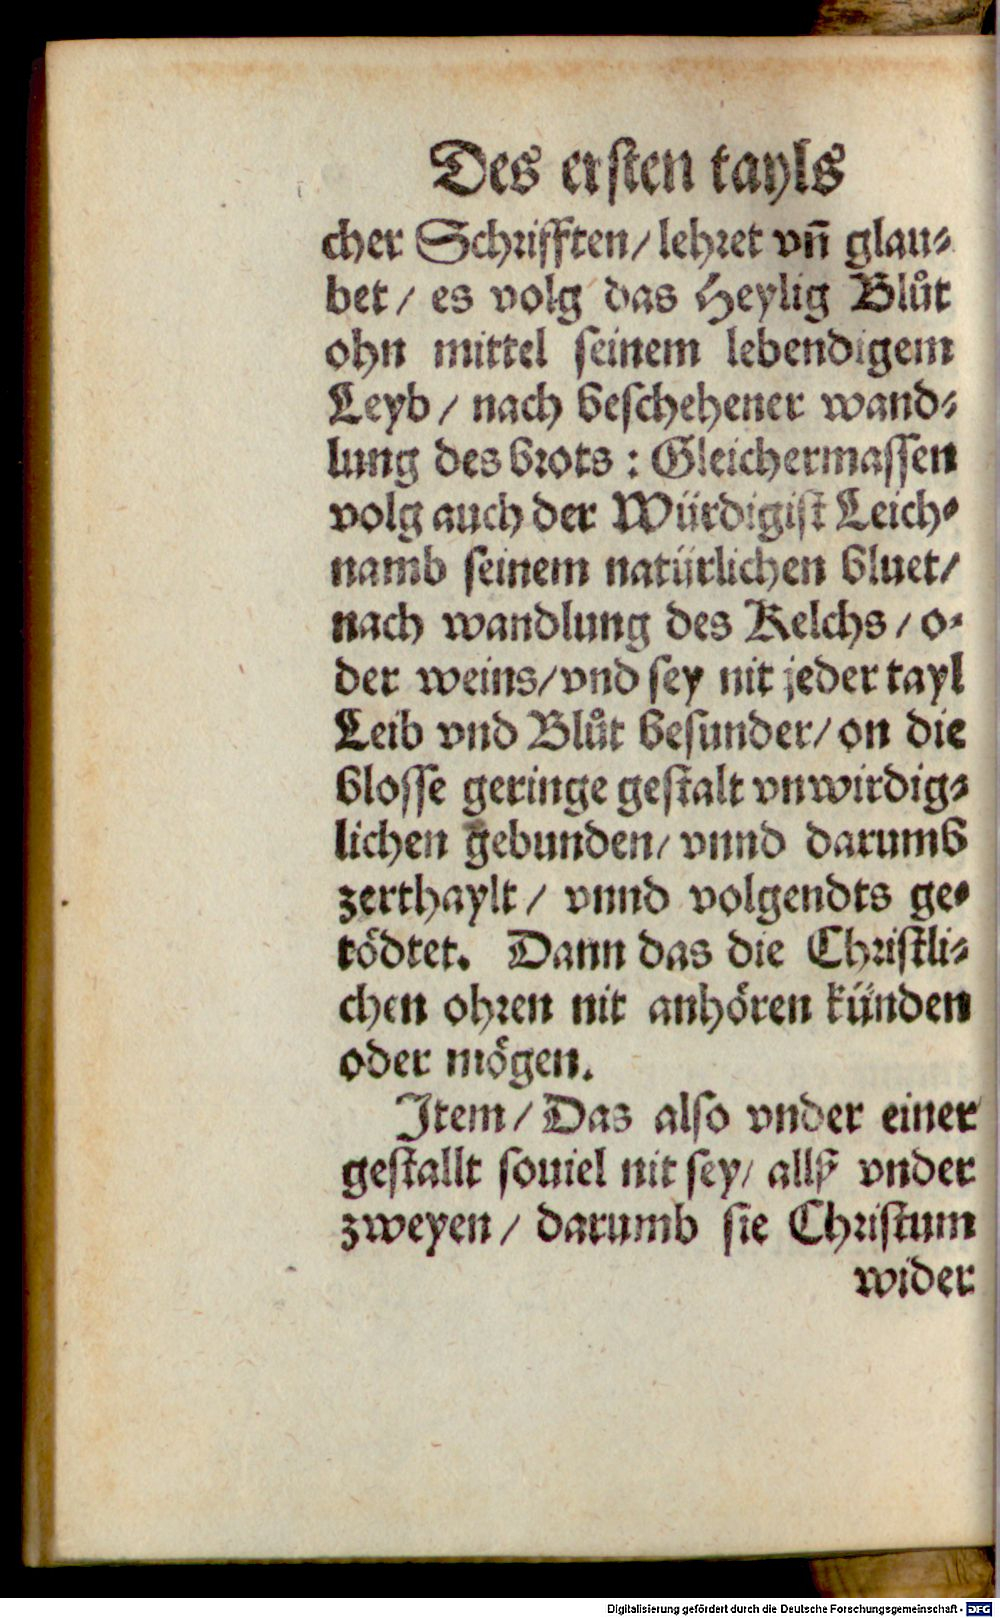 Des ersten tayls
cher Schrifften/ lehret vñ glau⸗
bet/ es volg das Heylig Blůt
ohn mittel seinem lebendigem
Leyb/ nach beschehener wand⸗
lung des brots: Gleichermassen
volg auch der Würdigist Leich⸗
namb seinem natürlichen bluet/
nach wandlung des Kelchs/ o⸗
der weins/ vnd sey nit jeder tayl
Leib vnd Blůt besunder/ on die
blosse geringe gestalt vnwirdig⸗
lichen gebunden/ vnnd darumb
zerthaylt/ vnnd volgendts ge⸗
tödtet. Dann das die Christli⸗
chen ohren nit anhören künden
oder mögen.
Item/ Das also vnder einer
gestallt souiel nit sey/ allß vnder
zweyen/ darumb sie Christum
wider
Digitalisierung gefördert durch die Deutsche Forschungsgemeinschaft - DFG